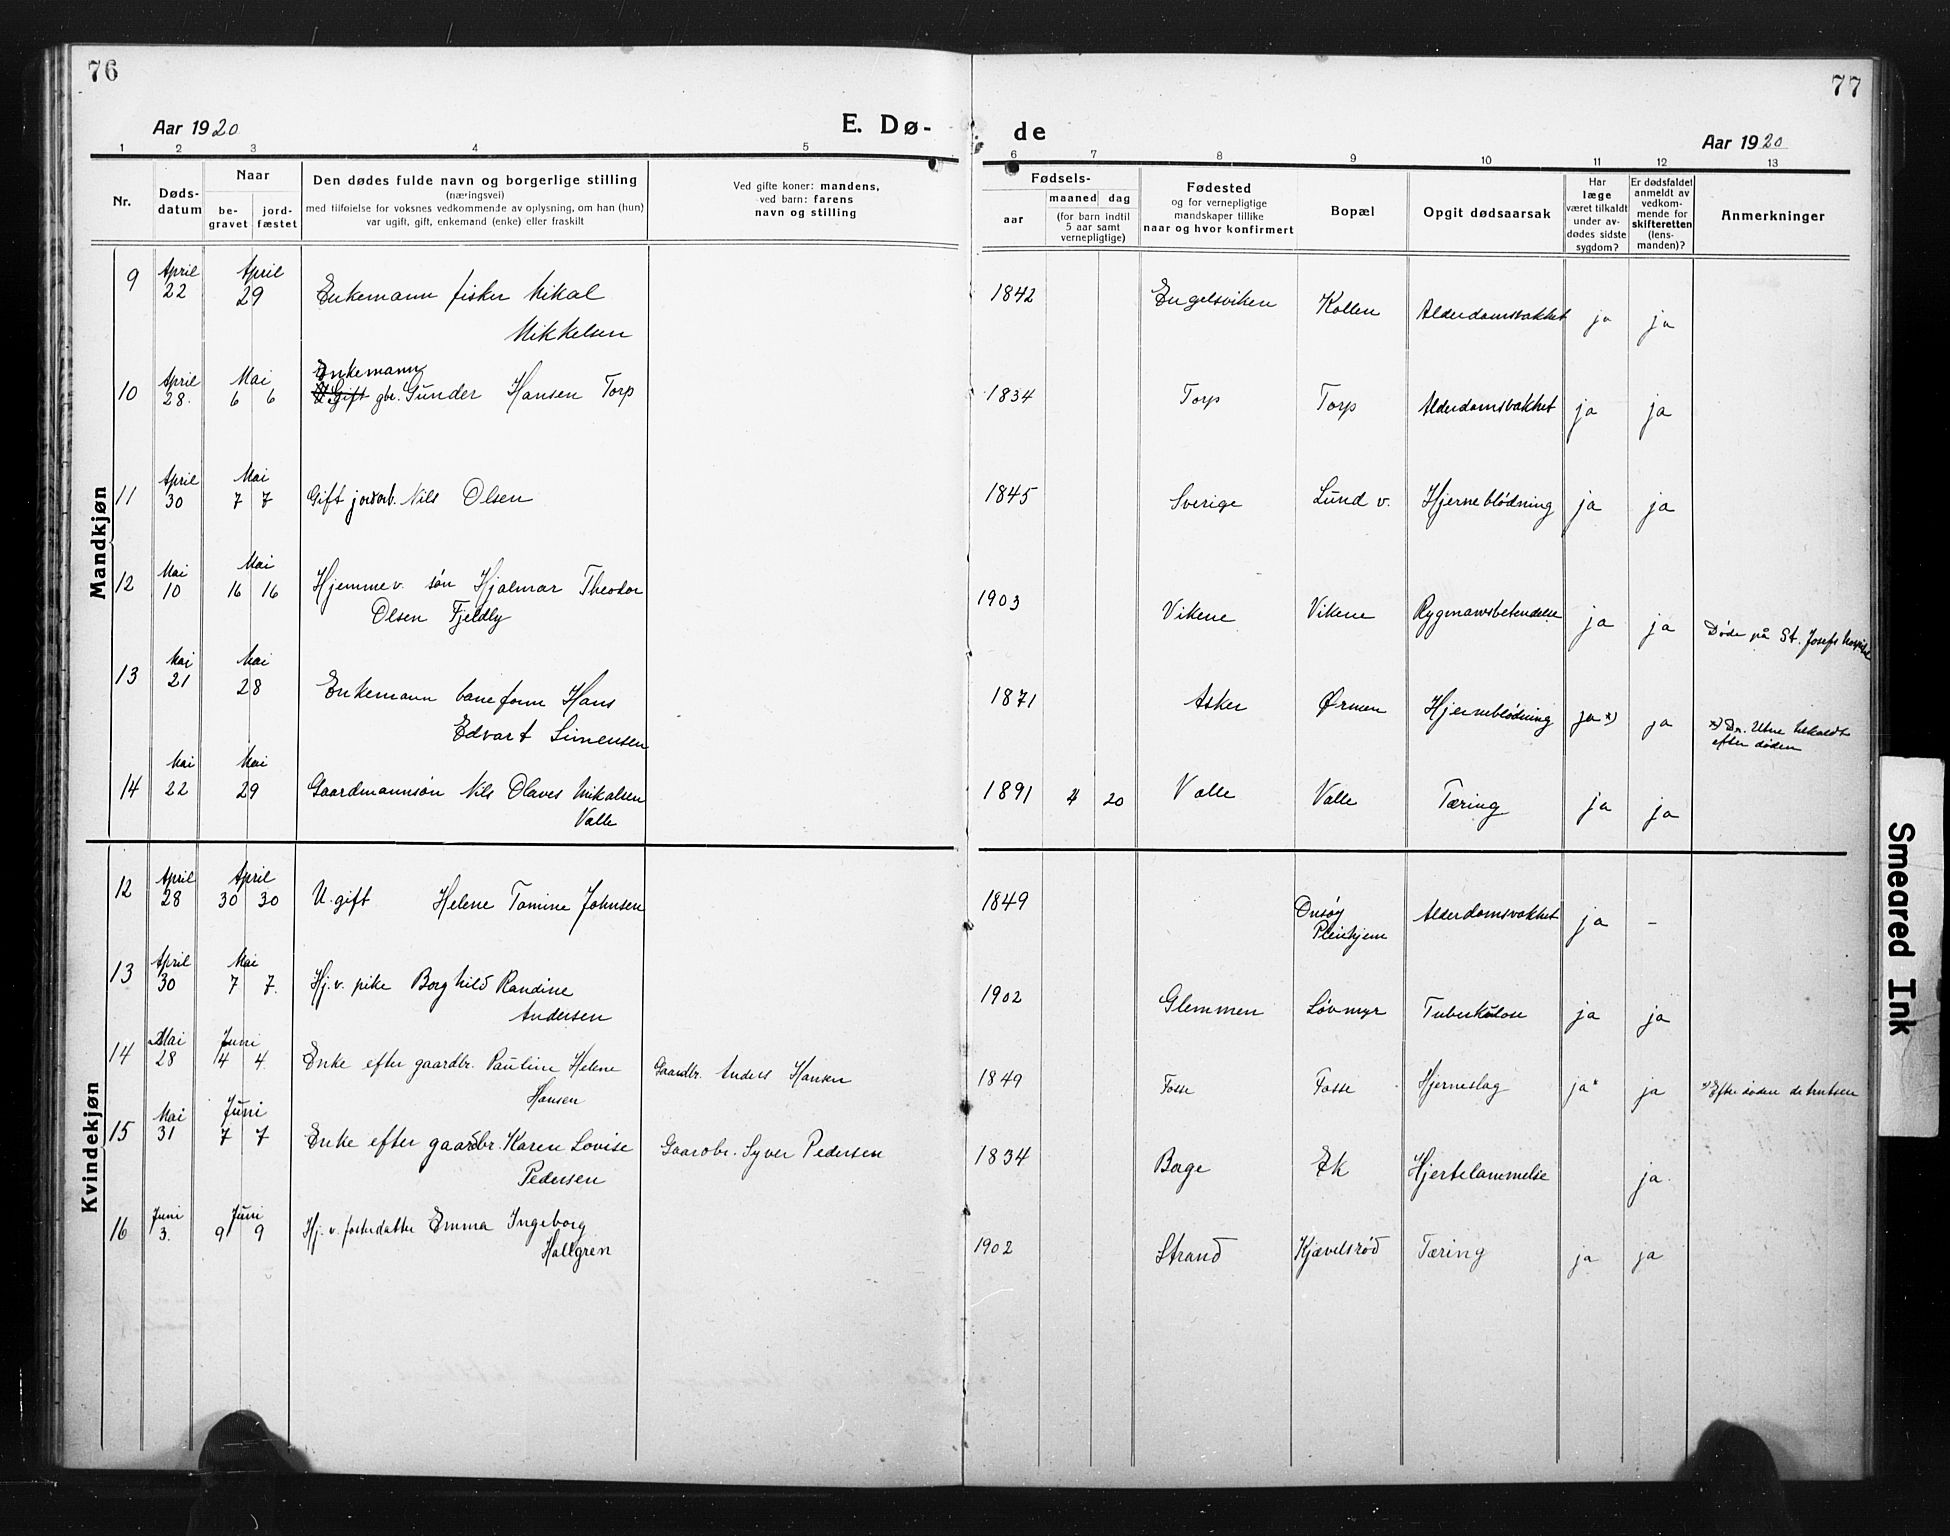 76
77
Aar 1920
E. Dø-
de
Aar 1920
1 2 3 4 5 6 7 8 9 10 11 12 13
Nr.
Døds-
datum
Naar
be-
gravet
jord-
fæstet
Den dødes fulde navn og borgerlige stilling
(næringsvei)
med tilføielse for voksnes vedkommende av oplysning, om han (hun)
var ugift, gift, enkemand (enke) eller fraskilt
Ved gifte koner: mandens,
ved barn: farens
navn og stilling
Fødsels-
aar
maaned dag
(for barn indtil
5 aar samt
vernepligtige)
Fødested
og for vernepligtige
mandskaper tillike
naar og hvor konfirmert
Bopæl
Opgit dødsaarsak
Har
læge
været tilkaldt
under av-
dødes sidste
sygdom?
Er dødsfaldet
anmeldt av
vedkom-
mende for
skifteretten
(lens-
manden)?
Anmerkninger
Mandkjøn
9 April 22 April 29 Enkemann fisker Mikal
Mikkelsen
1842 Engelsviken Kollen Alderdomsvakhet ja ja
Enkemann
10 April 28. Mai 6 6 gbr. Gunder Hansen Torp
1834 Torp Torp Alderdomsvakhet ja ja
11 April 30 Mai 7 7 Gift jordarb. Nils Olsen
1845 Sverige Lund v. Hjerneblødning ja ja
12 Mai 10 Mai 16 16 Hjemmev. søn Hjalmar Theodor
Olsen Fjeldly
1903 Vikene Vikene Rygmarvsbetendelse ja ja Døde på St. Josefs hospital
13 Mai 21 Mai 28 Enkemann baneform Hans
Edvart Simensen
1871 Asker Ørmen Hjerneblødning ja x) ja x) Dr. Utne tilkaldt
efter døden
14 Mai 22 Mai 29 Gaardmannsøn Nils Olaves Mikalsen
Valle
1891 4 20 Valle Valle Tæring ja ja
Kvindekjøn
12 April 28 April 30 30 U. gift Helene Tomine Johnsen
1849 Onsøy
Pleiehjem Alderdomsvakhet ja -
13 April 30 Mai 7 7. Hj. v. pike Borghild Randine
Andersen
1902 Glemmen Løvmyr Tuberkulose ja ja
14 Mai 28 Juni 4 4. Enke efter gaardbr. Pauline Helene
Hansen
Gaardbr. Anders Hansen
1849 Fosse Fosse Hjerneslag ja x ja x) Efter døden
15 Mai 31 Juni 7 7 Enke efter gaardbr. Karen Lovise
Pedersen
Gaardbr. Syver Pedersen
1834 Borge Ek Hjertelammelse ja.
16 Juni 3. Juni 9 9 Hj. v. fosterdatter Emma Ingeborg
Hallgren
1902 Strand Kjævelsrød Tæring ja ja
Smeared Ink